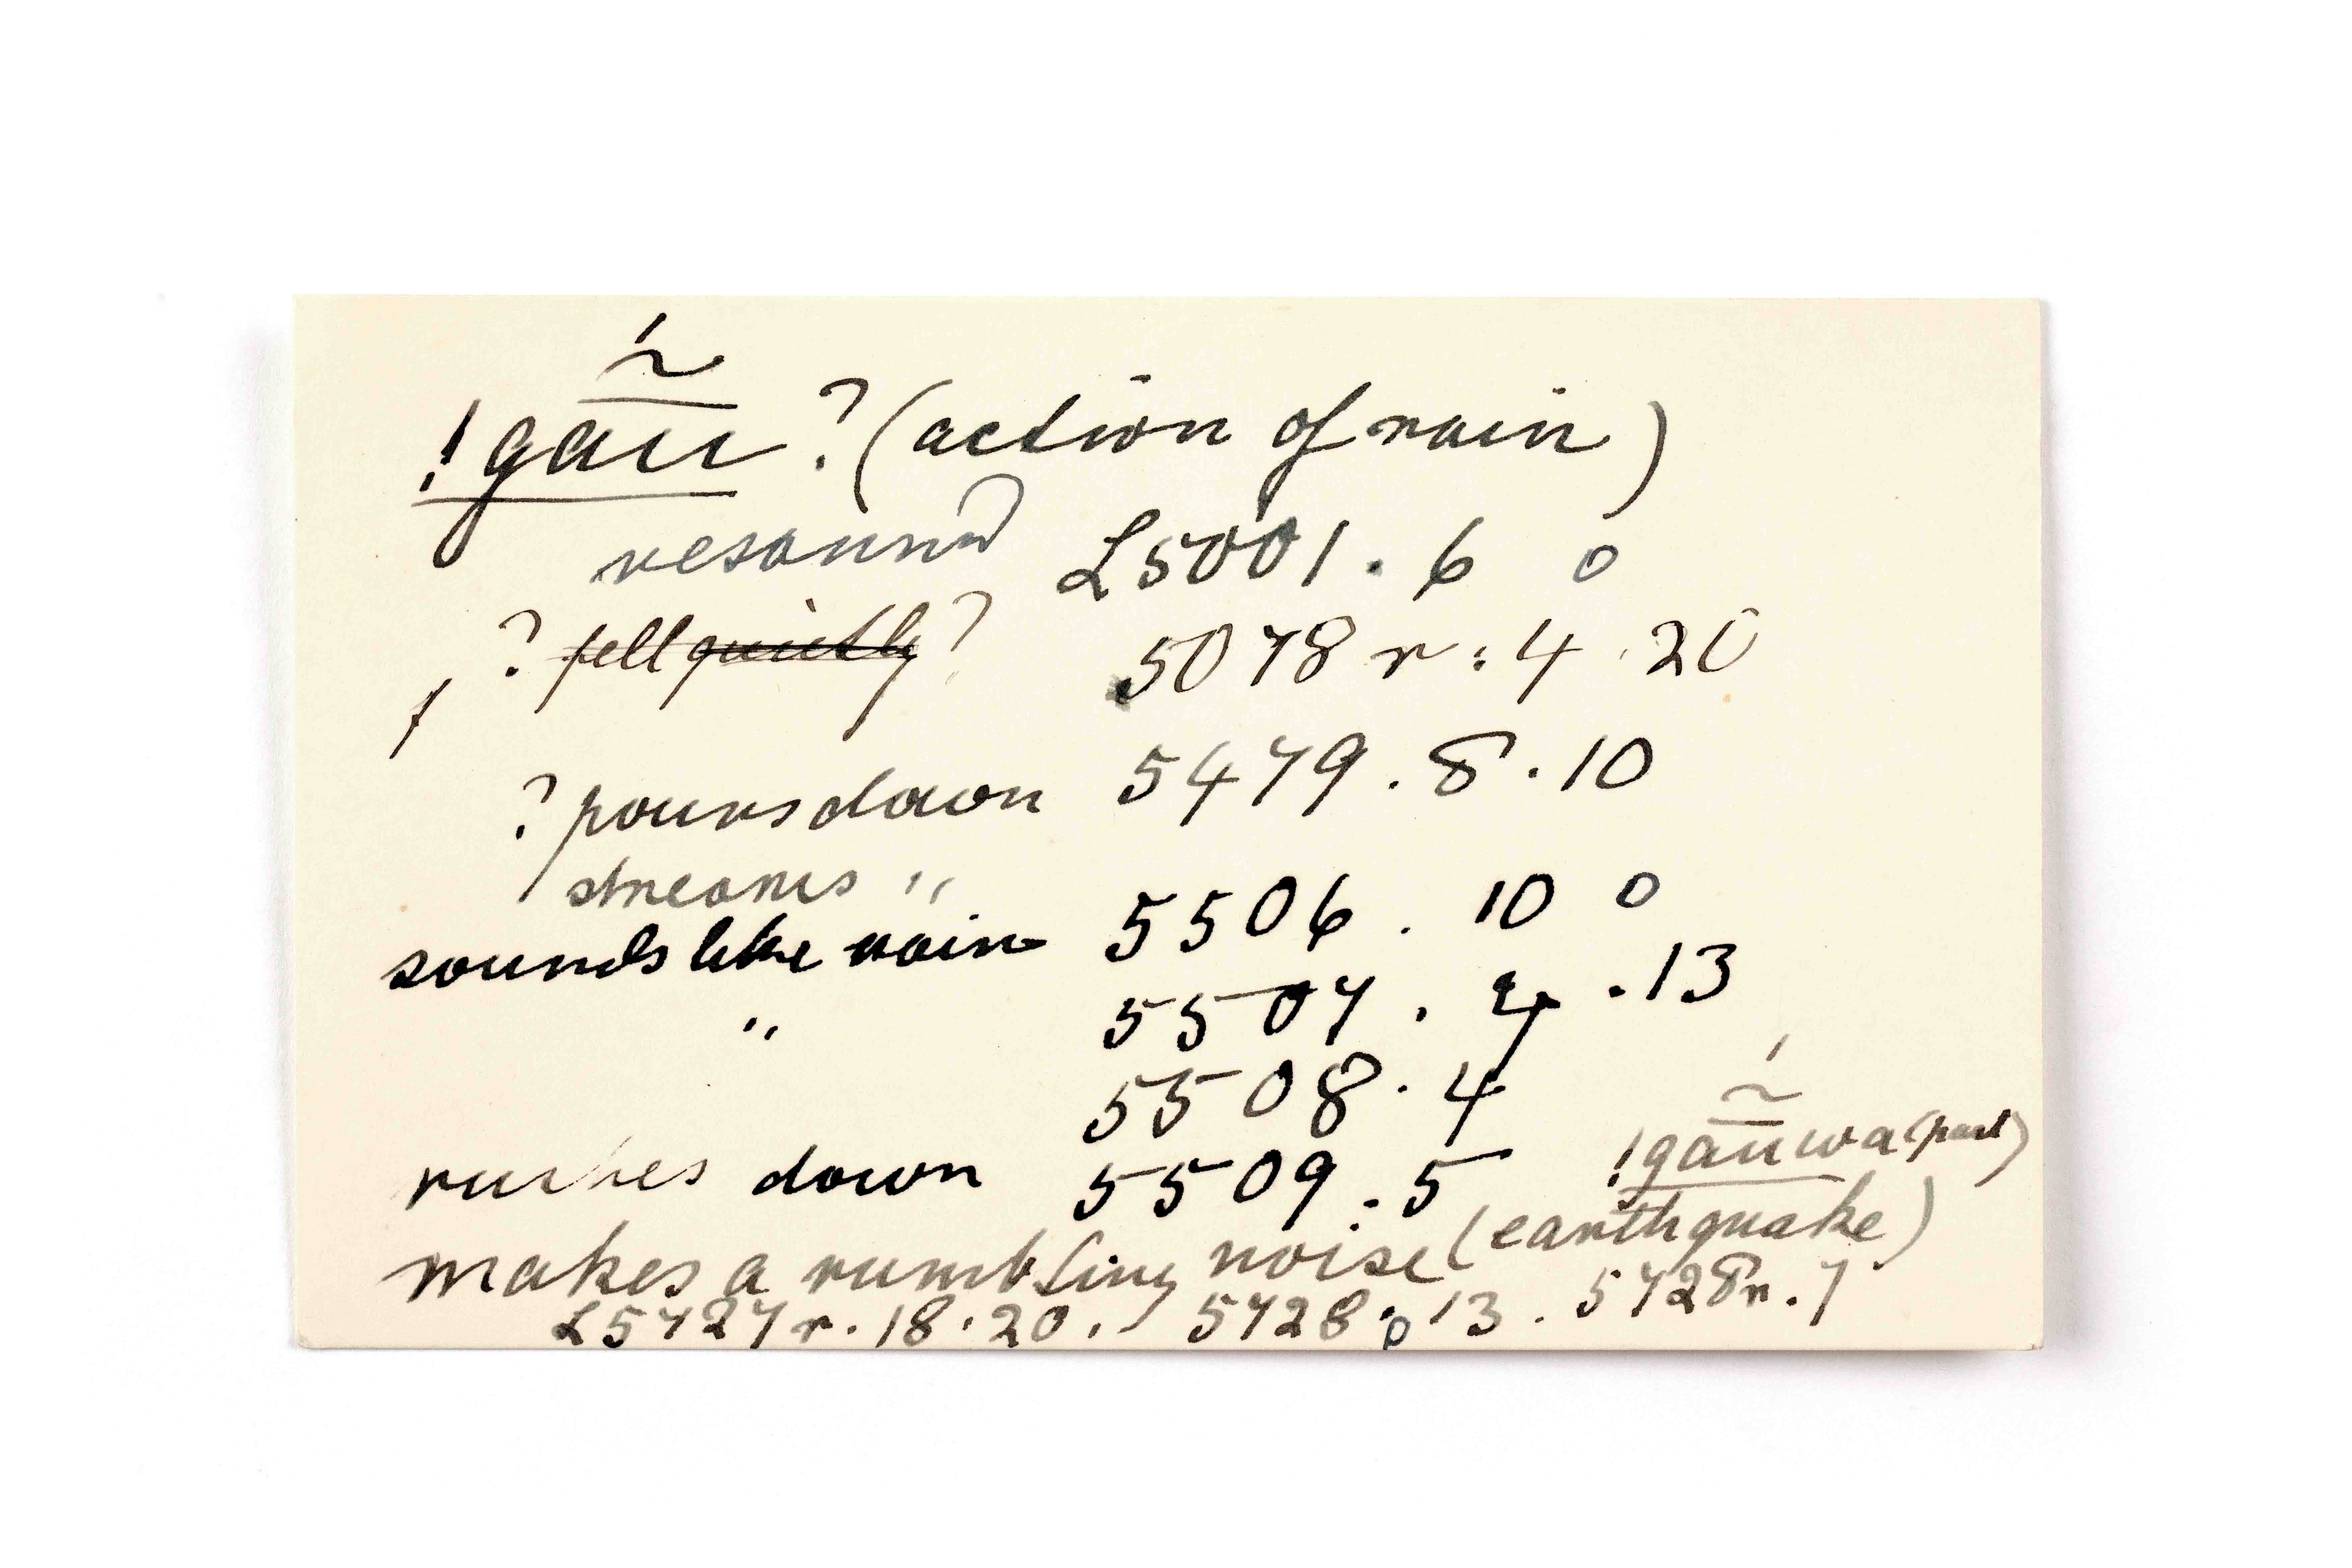 !gãū́ ? (action of rain)
resound £5001 . 6 o
? fell quietly ? 5078 r : 4 . 20
? pours down 5479 . 8 . 10
streams "
sounds like rain 5506 . 10 o
" 5507 . 4 . 13
5508 . 4
rushes down 5509 . 5 !gãū́wa (past)
makes a rumbling noise (earthquake)
£5727 r . 18 . 20 . 5728 . o 13 . 5728r . 7